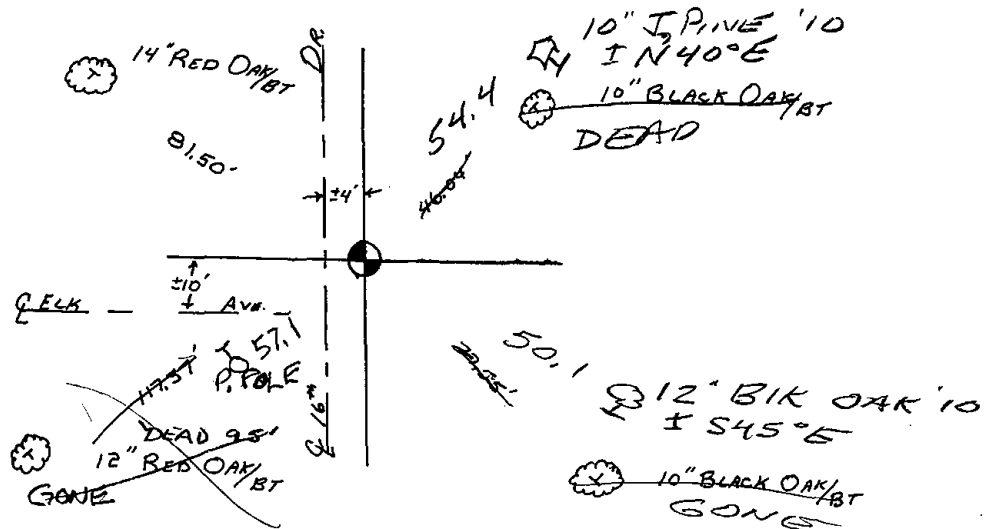 14" RED OAK/BT
81.50'
DR.
10" J, PINE '10
I N40°E
10" BLACK OAK/BT
DEAD
54.4
46.04
±4'
±10'
℄ ELK AVE.
57.1
P. POLE
117.57'
DEAD 95'
12" RED OAK/BT
GONE
℄ 16TH
50.1
12" BIK OAK '10
I S45°E
10" BLACK OAK/BT
GONE